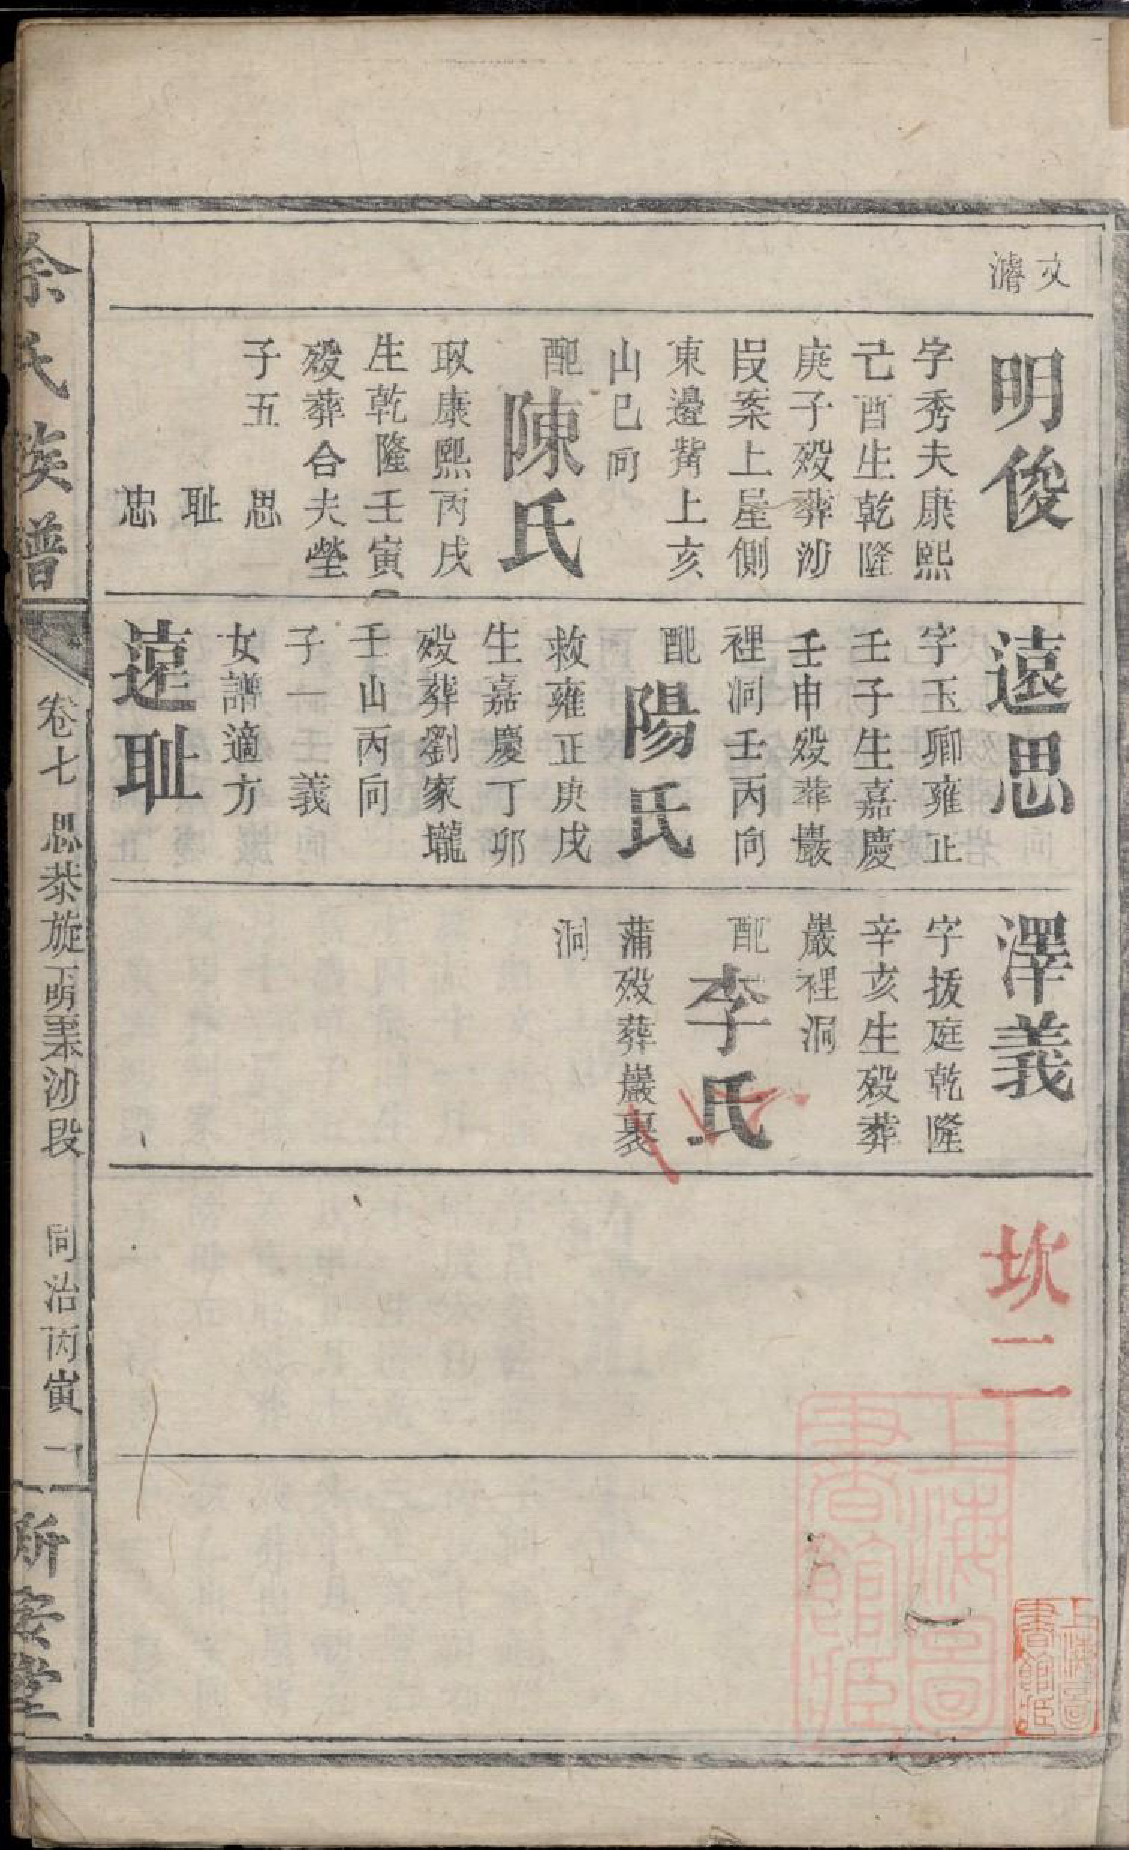 文
濬
明俊
字秀夫康熙
己酉生乾隆
庚子殁葬沙
段案上屋側
東邊觜上亥
山巳向
配
陳氏
取康熙丙戌
生乾隆壬寅
殁葬合夫塋
子五
思
耻
忠
遠思
字玉卿雍正
壬子生嘉慶
壬申殁葬巖
裡洞壬丙向
配
陽氏
救雍正庚戌
生嘉慶丁卯
殁葬劉家壠
壬山丙向
子一壬義
女譜適方
遠耻
澤義
字拔庭乾隆
辛亥生殁葬
巖裡洞
配
李氏
蒲殁葬巖裏
洞
坎二
上海圖
書館藏
上海圖
書館藏
徐氏族譜
卷七 思恭旋明秉沙段 同治丙寅 一
斯安堂